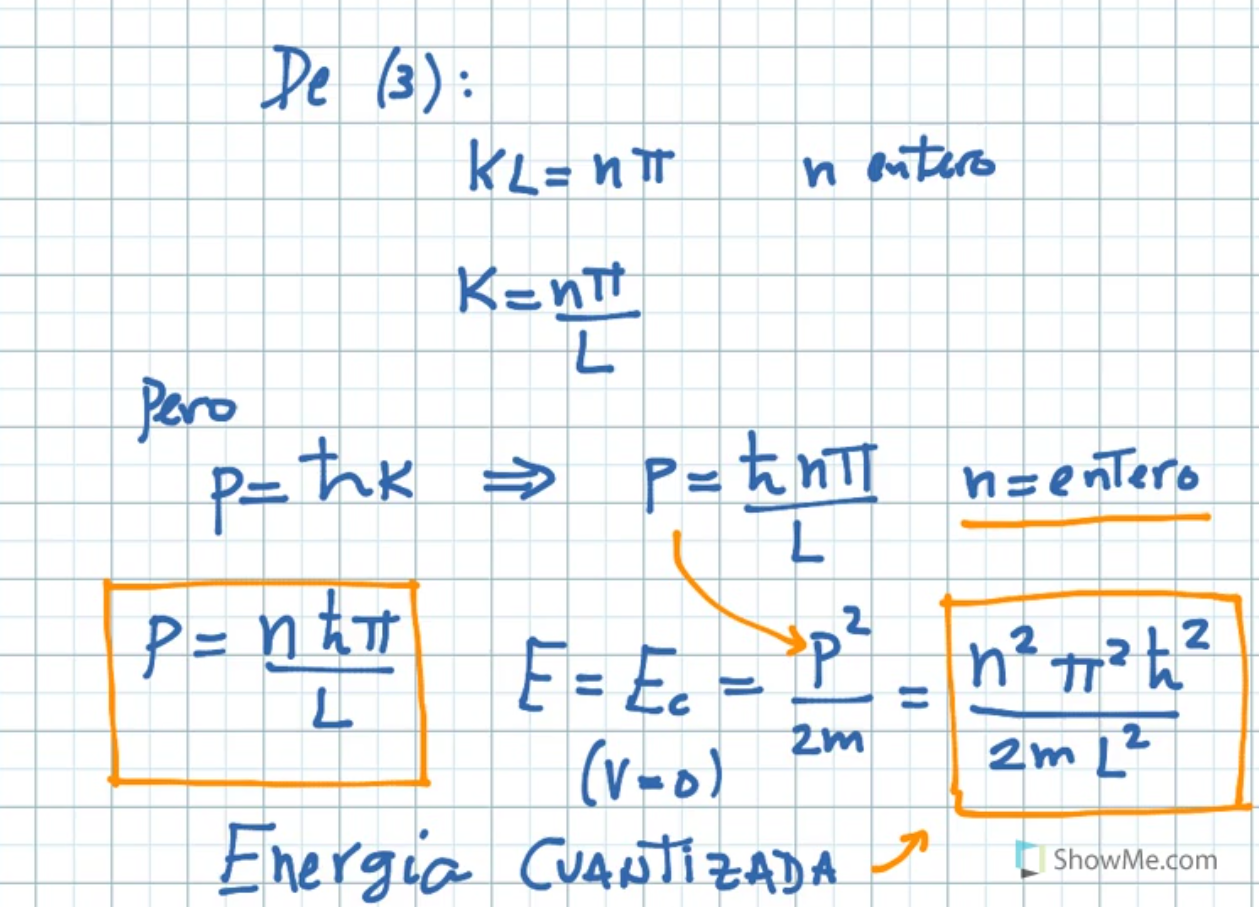 De (3):
KL = nπ n entero
K = nπ/L
Pero
P = ħK ⇒ P = ħnπ/L n = entero
P = nħπ/L E = Ec = P²/2m = n²π²ħ²/2mL²
(V=0)
Energia CUANTIZADA
ShowMe.com